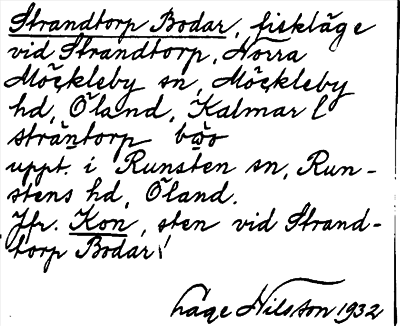 Strandtorp Bodar, fiskläge
vid Strandtorp, Norra
Möckleby sn, Möckleby
hd, Öland, Kalmar l
sträntorp
uppt. i Runsten sn, Run-
stens hd, Öland.
Jfr. Kon, sten vid Strand-
torp Bodar!
Nilsson 1932